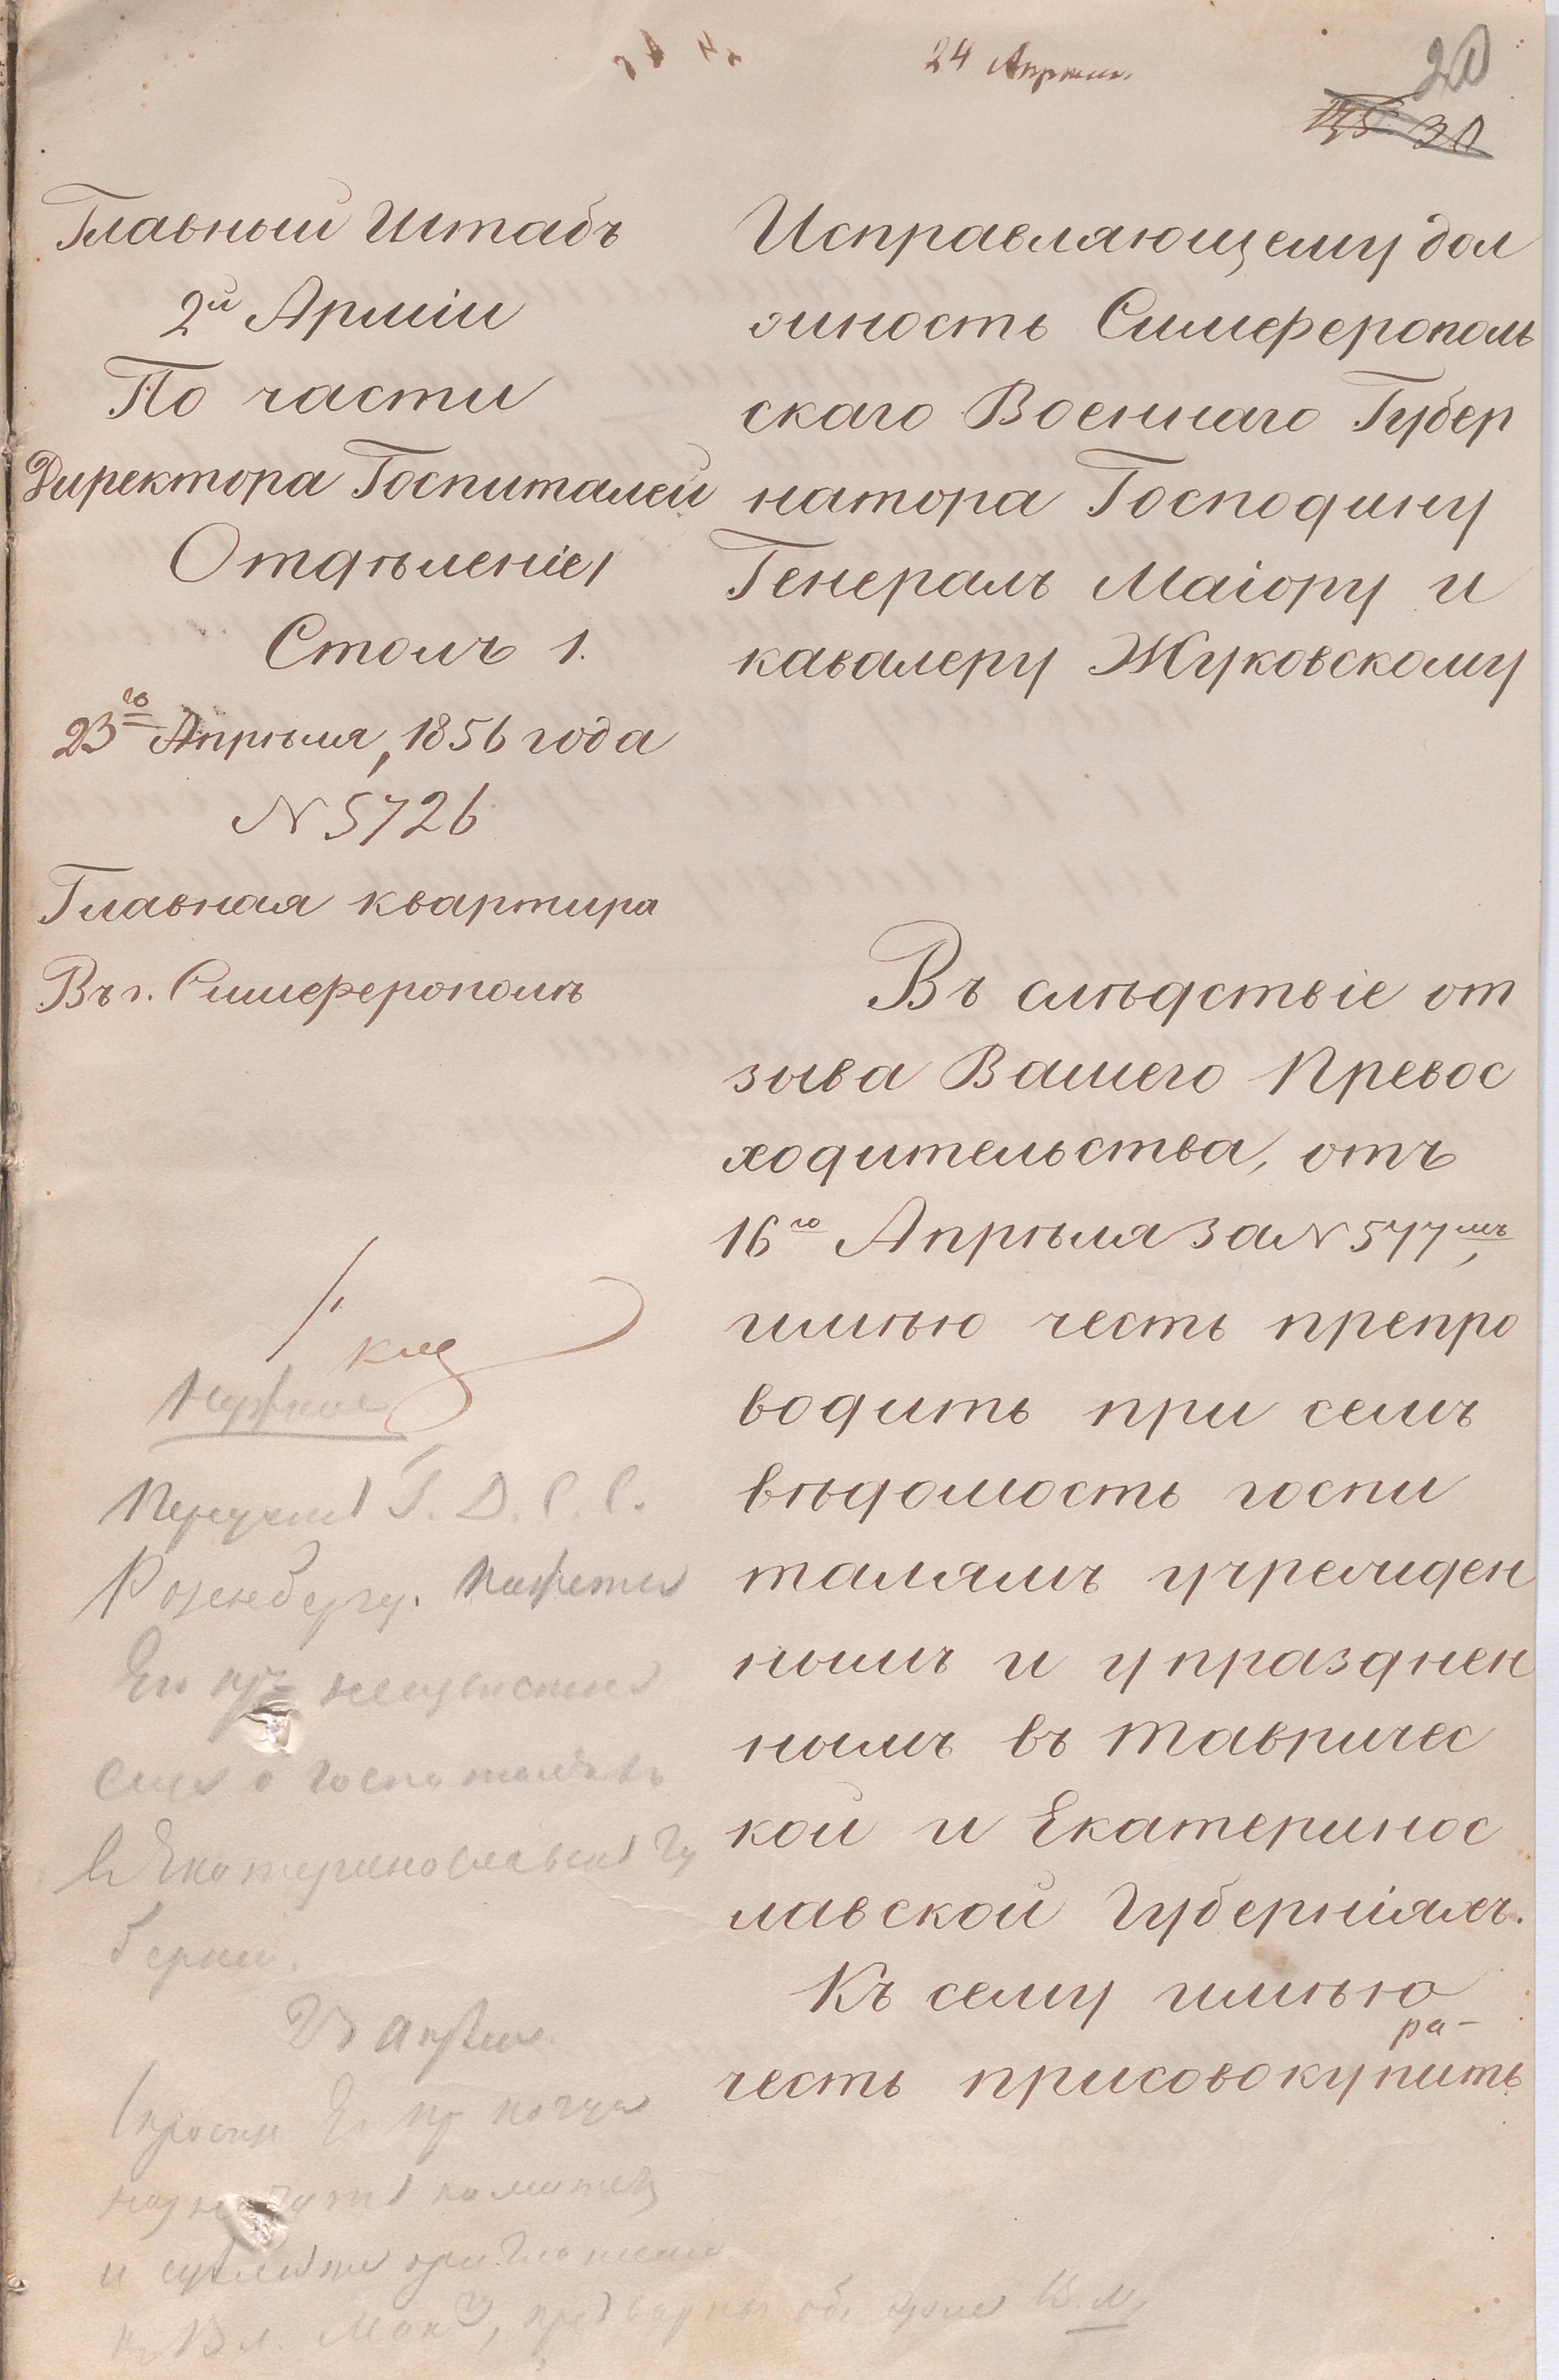 24 Апреля.
20
30
Главный Штабъ
2й Арміи
По части
Директора Госпиталей
Отдѣленіе 1
Столъ 1.
23го Апрѣля, 1856 года
N 5726
Главная квартира
Въ г. Симферополѣ
Исправляющему дол
жность Симферополь
скаго Военнаго Губер
натора Господину
Генералъ Маіору и
кавалеру Жуковскому
Въ слѣдствіе от
зыва Вашего Превос
ходительства, отъ
16го Апрѣля за N 577мъ,
имѣю честь препро
водить при семъ
вѣдомость госпи
талямъ учрежден
нымъ и упразднен
нымъ въ Тавричес
кой и Екатеринос
лавской Губерніяхъ.
Къ сему имѣю
честь присовокупить
ра-
Нужное
Г. Д. С. С.
Розенбергу.
о госпиталяхъ
въ Екатеринославской Гу
берніи.
23 апреля